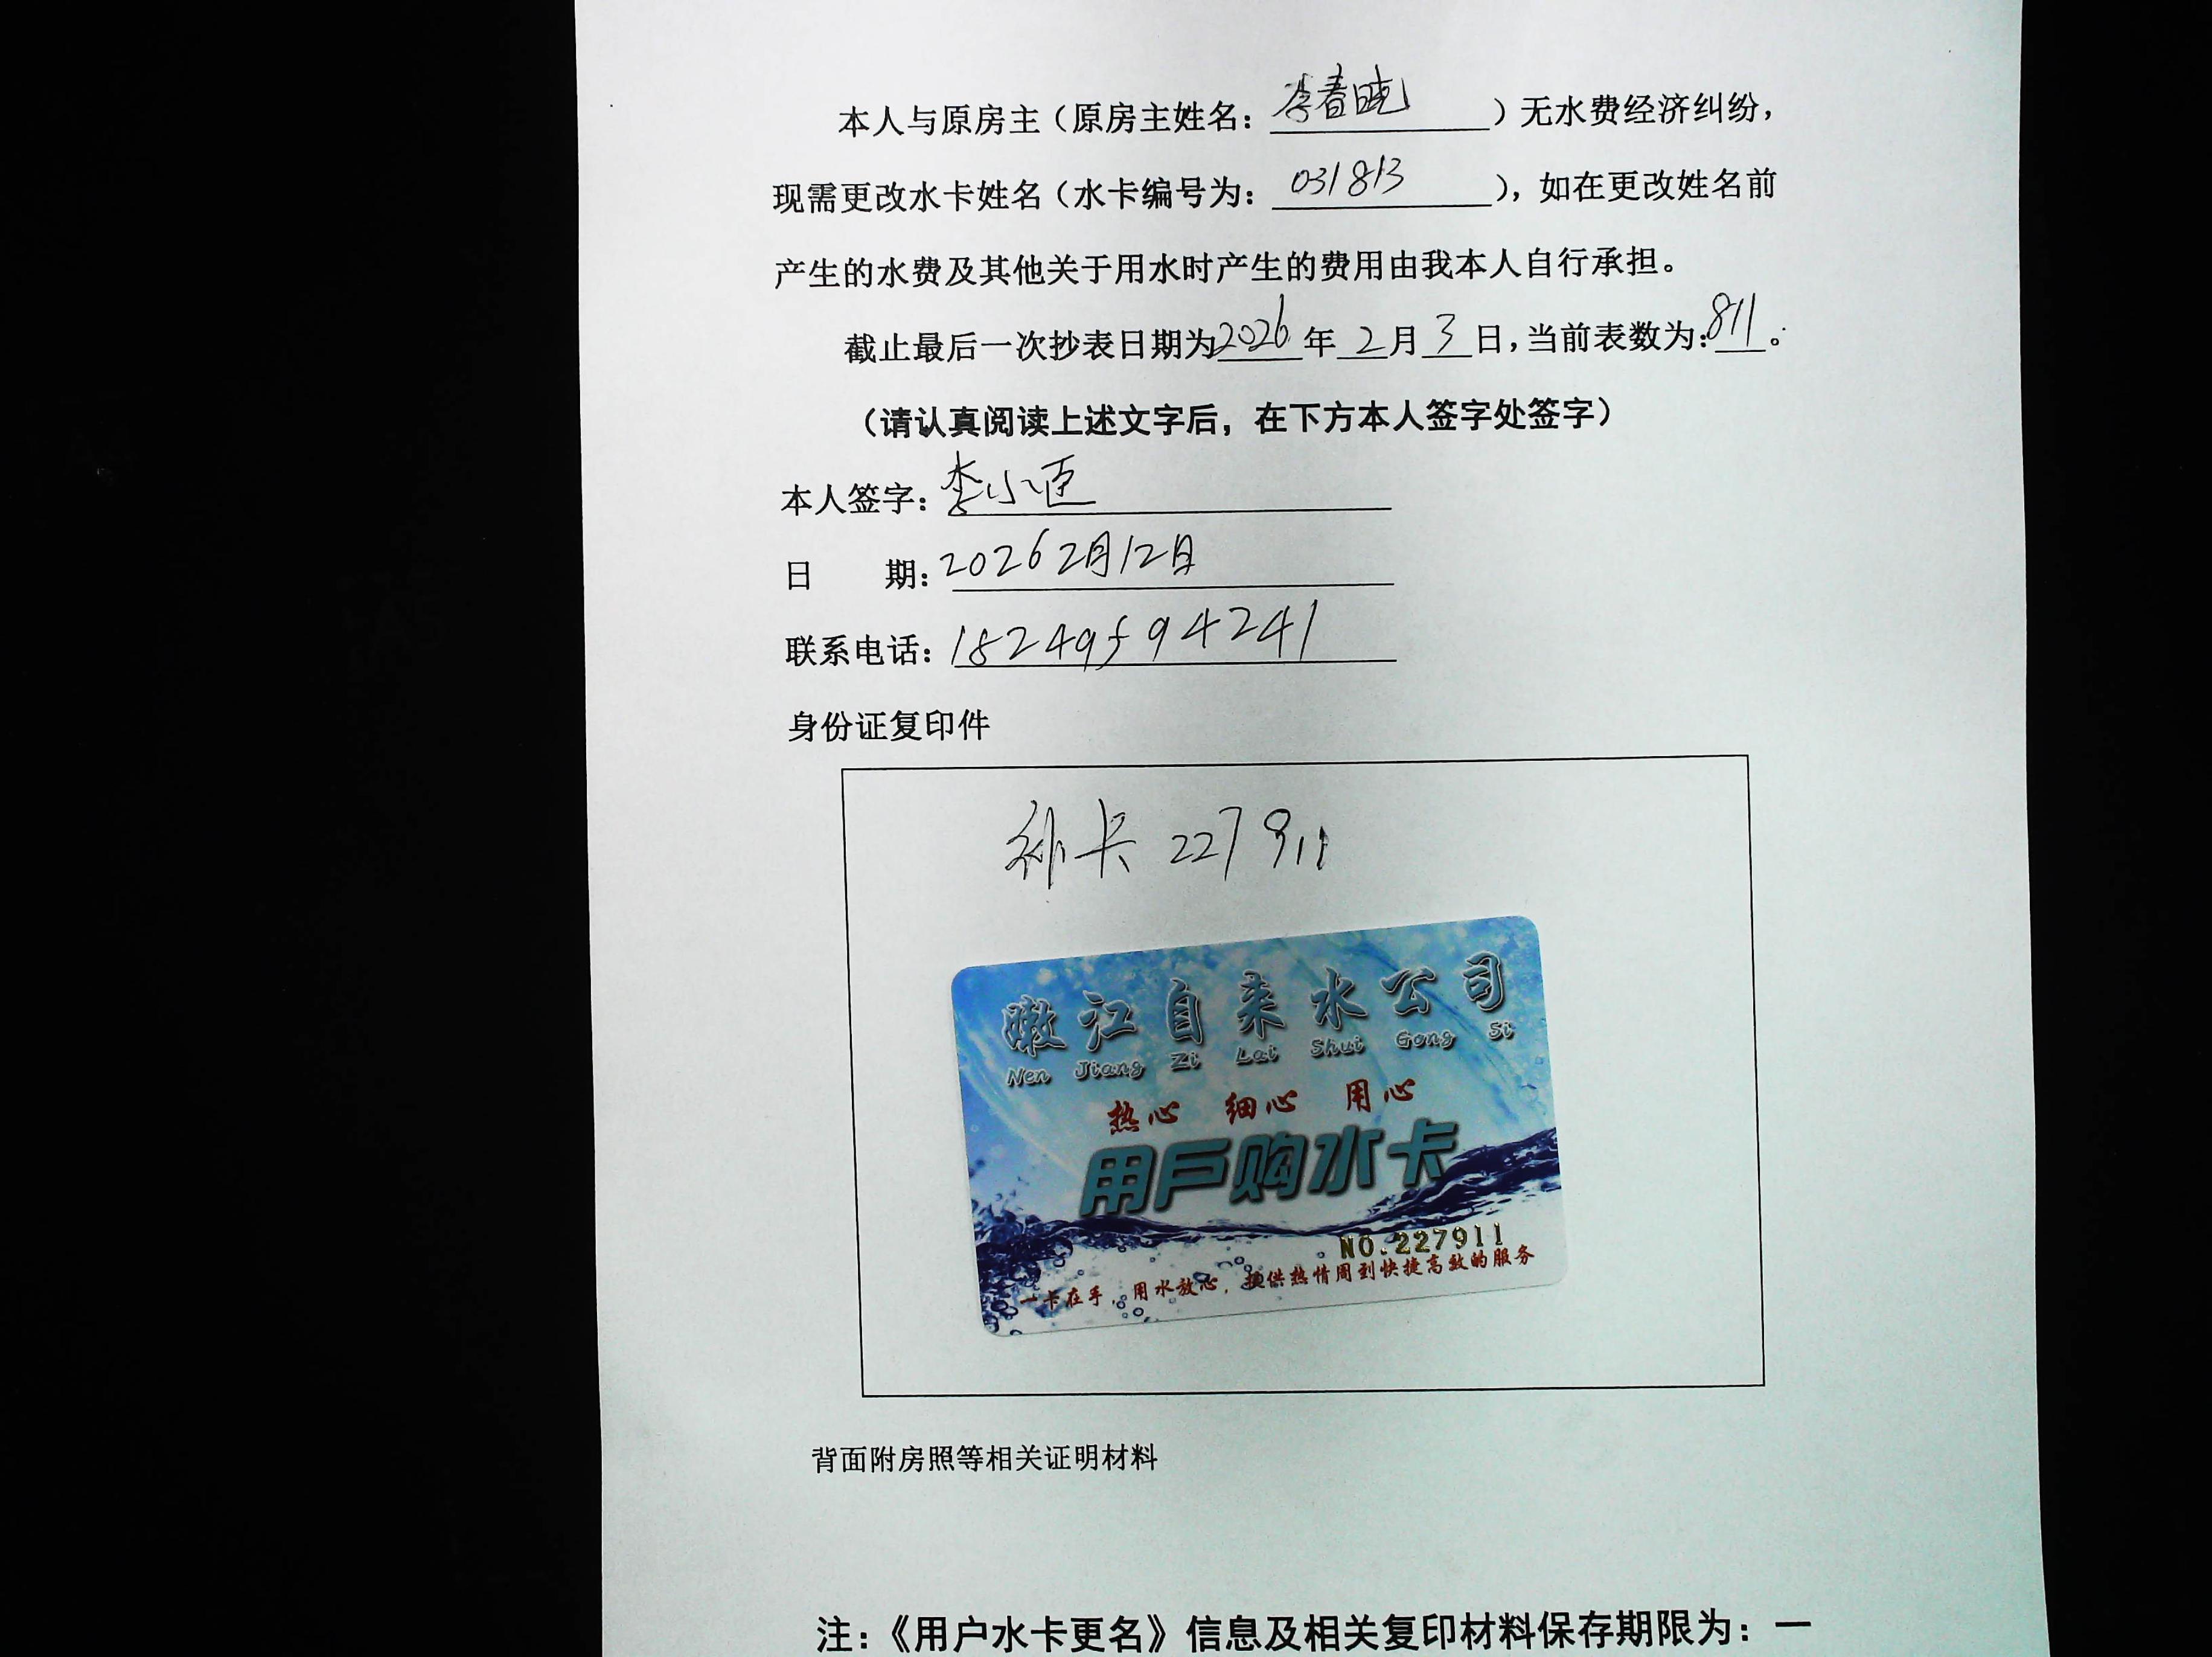 本人与原房主（原房主姓名：李春晓）无水费经济纠纷，
现需更改水卡姓名（水卡编号为：031813），如在更改姓名前
产生的水费及其他关于用水时产生的费用由我本人自行承担。
截止最后一次抄表日期为2026年2月3日，当前表数为：811。
（请认真阅读上述文字后，在下方本人签字处签字）
本人签字：李小
日 期：2026 2月12日
联系电话：18249594241
身份证复印件
补卡 227911
嫩江自来水公司
Nen Jiang Zi Lai Shui Gong Si
热心 细心 用心
用户购水卡
NO.227911
一卡在手，用水放心，提供热情周到快捷高效的服务
背面附房照等相关证明材料
注：《用户水卡更名》信息及相关复印材料保存期限为：一